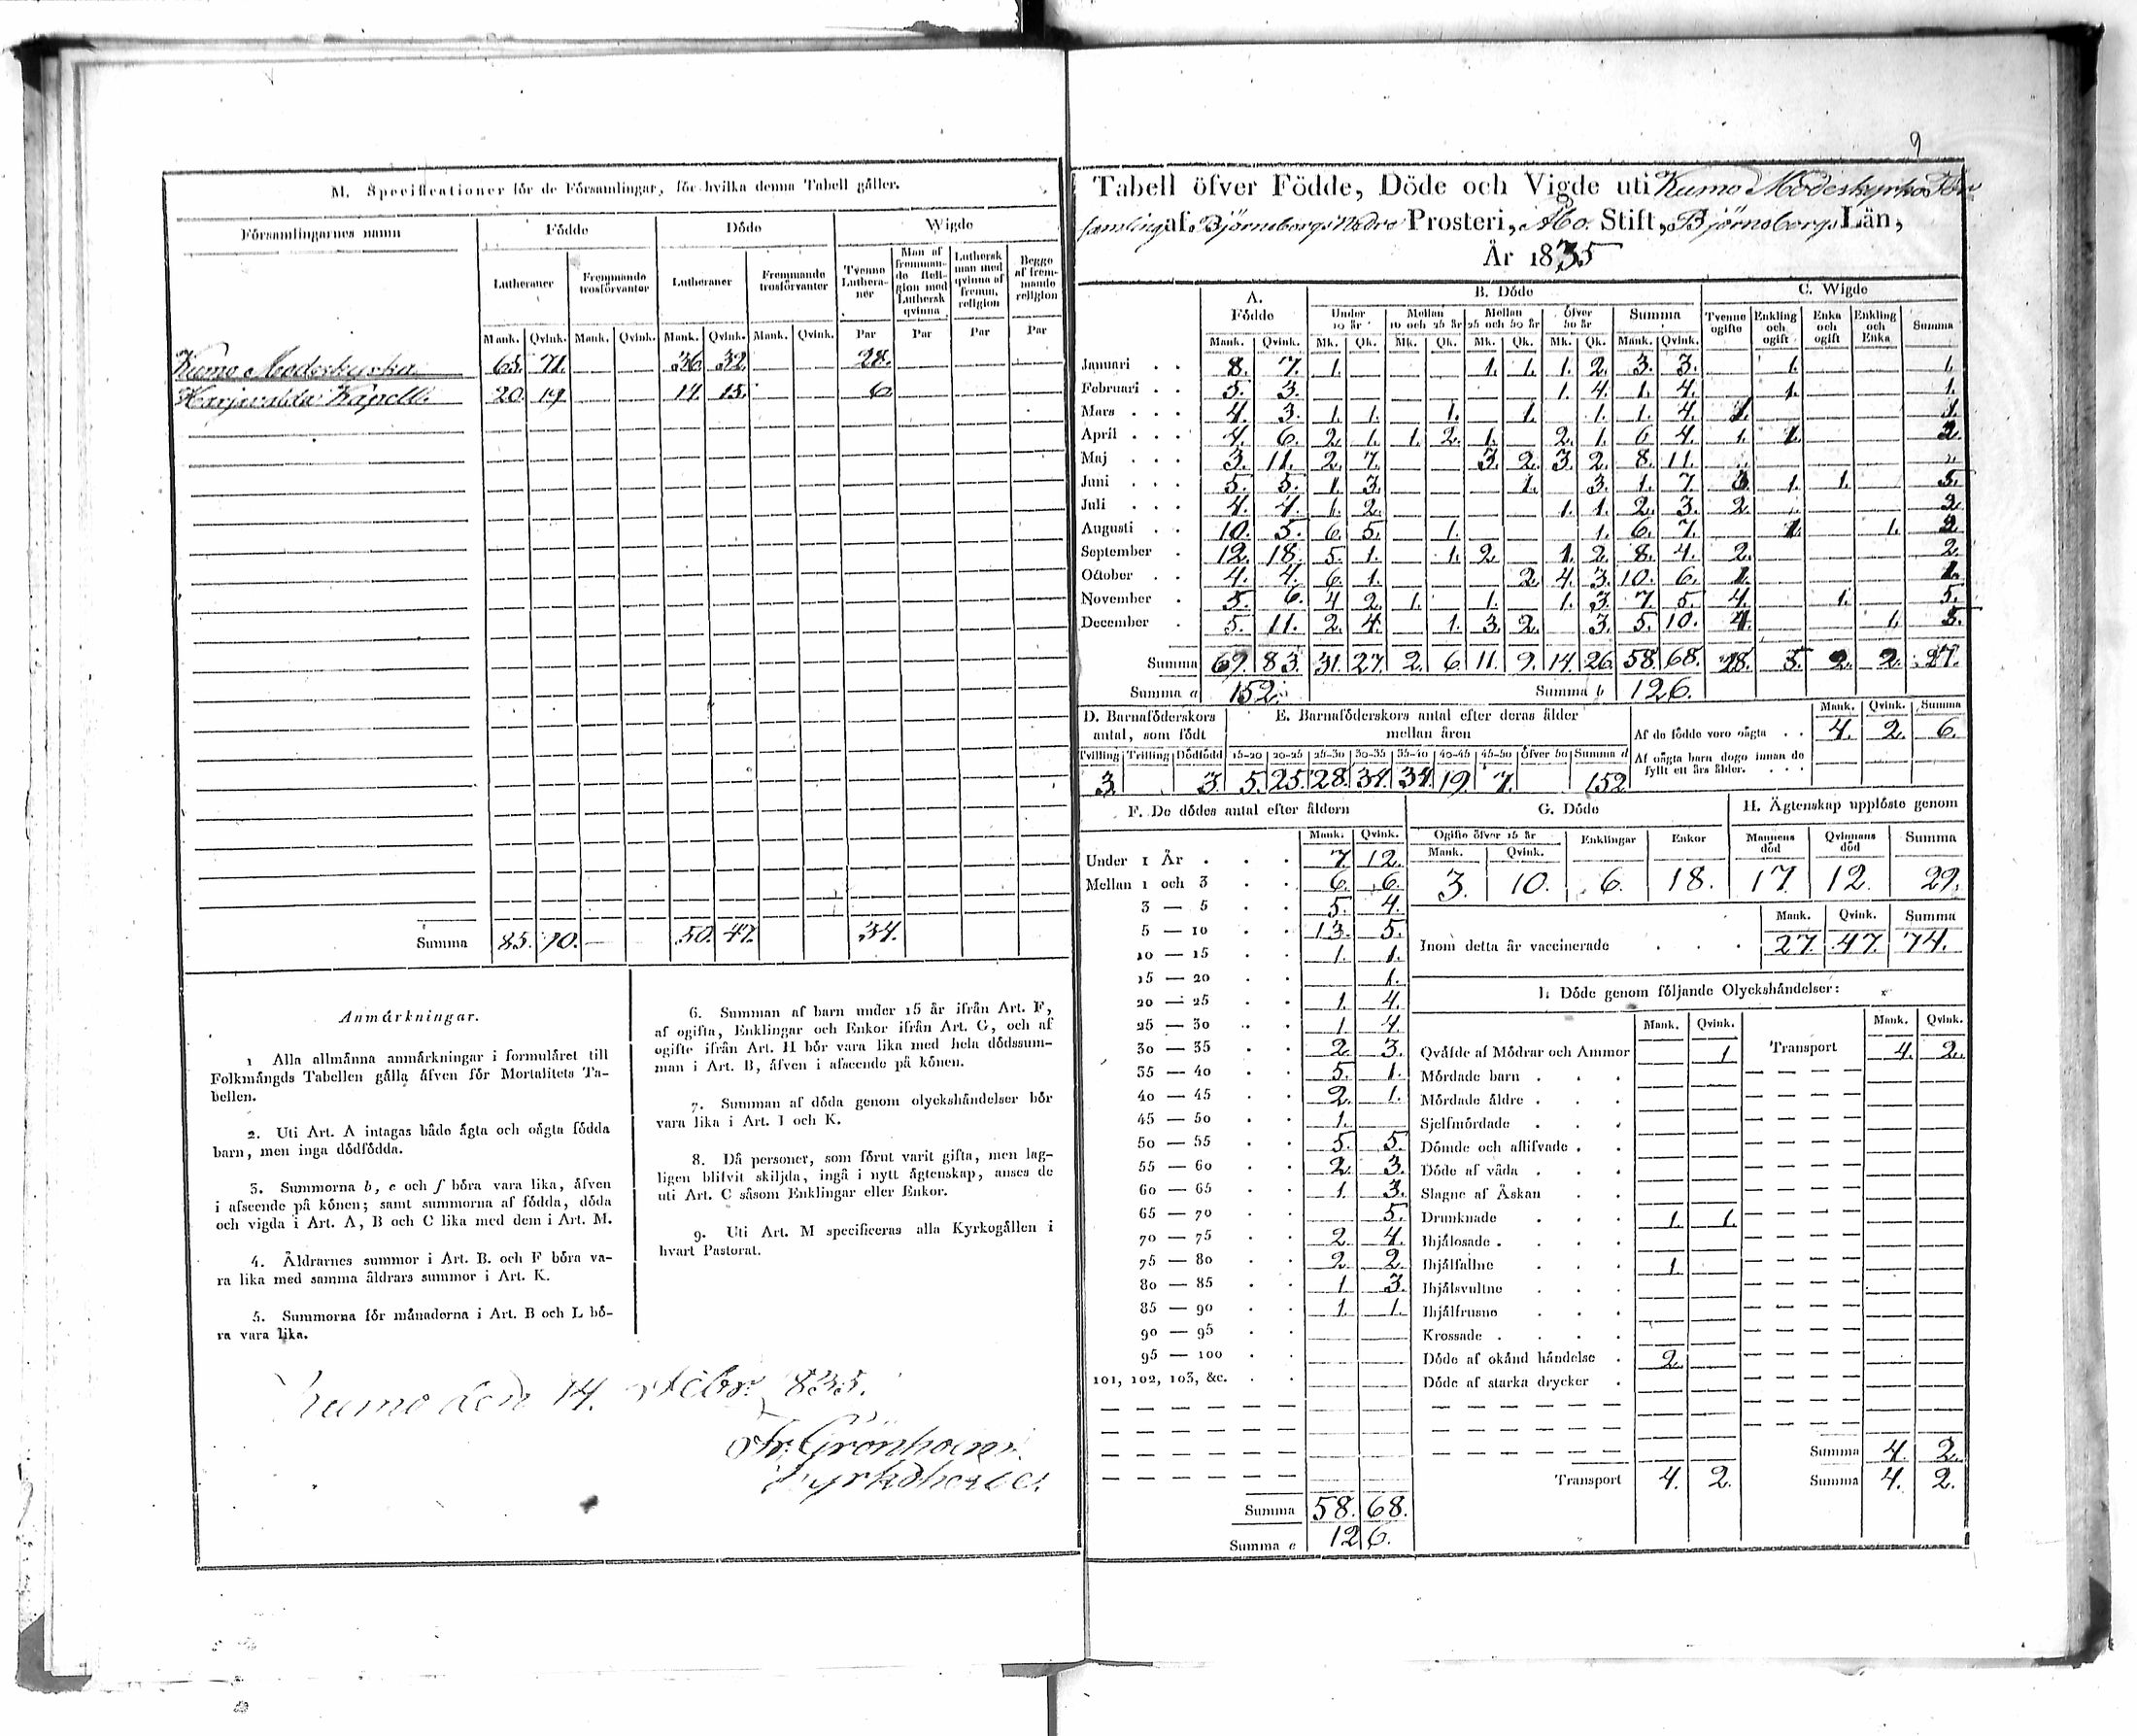 M. Specificationer för de Församlingar, för hvilka denna Tabell gäller.
Församlingarnes namn Födde Döde Wigde
Lutheraner Fremmande trosförvanter Lutheraner Fremmande trosförvanter Tvenne Lutheraner Man af fremmande Religion med Luthersk qvinna Luthersk man med qvinna af fremm. religion Begge af fremmande religion
Mank. Qvink. Mank. Qvink. Mank. Qvink. Mank. Qvink. Par Par Par Par
Kumo Moderkyrka 65. 71. 36. 32. 28.
Harjavalda Kapell. 20. 19 14. 15. 6.
Summa 85. 90. 50. 47. 34.
Anmärkningar.
1 Alla allmänna anmärkningar i formuläret till
Folkmängds Tabellen gälla äfven för Mortalitets Ta-
bellen.
2. Uti Art. A intagas både ägta och oägta födda
barn, men inga dödfödda.
3. Summorna b, e och f böra vara lika, äfven
i afseende på könen; samt summorna af födda, döda
och vigda i Art. A, B och C lika med dem i Art. M.
4. Åldrarnes summor i Art. B. och F böra va-
ra lika med samma åldrars summor i Art. K.
5. Summorna för månaderna i Art. B och L bö-
ra vara lika.
6. Summan af barn under 15 år ifrån Art. F,
af ogifta, Enklingar och Enkor ifrån Art. G, och af
ogifte ifrån Art. H bör vara lika med hela dödssum-
man i Art. B, äfven i afseende på könen.
7. Summan af döda genom olyckshändelser bör
vara lika i Art. I och K.
8. Då personer, som förut varit gifta, men lag-
ligen blifvit skiljda, ingå i nytt ägtenskap, anses de
uti Art. C såsom Enklingar eller Enkor.
9. Uti Art. M specificeras alla Kyrkogällen i
hvart Pastorat.
Kumo den 14. 835.
Fr. Grönholm.
Kyrkoherde.
9
Tabell öfver Födde, Döde och Vigde uti Kumo Moderkyrko För
samling af Björneborgs Nedre Prosteri, Åbo. Stift, Björneborgs Län,
År 1835
A. Födde B. Döde C. Wigde
Under 10 år Mellan 10 och 25 år Mellan 25 och 50 år Öfver 50 år Summa Tvenne ogifte Enkling och ogift Enka och ogift Enkling och Enka Summa
Mank. Qvink. Mk. Qk. Mk. Qk. Mk. Qk. Mk. Qk. Mank. Qvink.
Januari 8. 7. 1. 1. 1. 1. 2. 3. 3. 1. 1.
Februari 5. 3. 1. 4. 1. 4. 1. 1.
Mars 4. 3. 1. 1. 1. 1. 1. 1. 4. 1. 1.
April 4. 6. 2. 1. 1. 2. 1. 2. 1. 6. 4. 1. 1. 2.
Maj 3. 11. 2. 7. 3. 2. 3. 2. 8. 11. „ „
Juni 5. 5. 1. 3. 1. 3. 1. 7. 3. 1. 1. 5.
Juli 4. 4. 1. 2. 1. 1. 2. 3. 2. 2.
Augusti 10. 5. 6. 5. 1. 1. 6. 7. 1. 1. 2.
September 12. 18. 5. 1. 1. 2. 1. 2. 8. 4. 2. 2.
October 4. 4. 6. 1. 2. 4. 3. 10. 6. 1. 1.
November 5. 6. 4. 2. 1. 1. 1. 3. 7. 5. 4. 1. 5.
December 5. 11. 2. 4. 1. 3. 2. 3. 5. 10. 4. 1. 5.
Summa 69. 83. 31. 27. 2. 6. 11. 9. 14. 26. 58. 68. 18. 5. 2. 2. 27.
Summa a 152. Summa b 126.
D. Barnaföderskors antal, som födt E. Barnaföderskors antal efter deras ålder mellan åren
Mank. Qvink. Summa
Af de födde voro oägta 4. 2. 6.
Tvilling Trilling Dödfödd 15-20 20-25 25-30 30-35 35-40 40-45 45-50 Öfver 50 Summa d
Af oägta barn dogo innan de fyllt ett års ålder.
3. 3. 5. 25. 28. 34. 34. 19. 7. 152
F. De dödes antal efter åldern
Mank. Qvink.
Under 1 År 7. 12.
Mellan 1 och 3 6. 6.
3 — 5 5. 4.
5 — 10 13. 5.
10 — 15 1. 1.
15 — 20 1.
20 — 25 1. 4.
25 — 30 1. 4.
30 — 35 2. 3.
35 — 40 5. 1.
40 — 45 2. 1.
45 — 50 1.
50 — 55 5. 5.
55 — 60 2. 3.
60 — 65 1 3.
65 — 70 5.
70 — 75 2. 4.
75 — 80 2. 2.
80 — 85 1 3.
85 — 90 1. 1.
90 — 95
95 — 100
101, 102, 103, &c.
Summa 58. 68.
Summa e 126.
G. Döde
Ogifte öfver 15 år Enklingar Enkor
Mank. Qvink.
3. 10. 6. 18.
H. Ägtenskap upplöste genom
Mannens död Qvinnans död Summa
17 12. 29.
Mank. Qvink. Summa
Inom detta år vaccinerade 27. 47. 74.
I. Döde genom följande Olyckshändelser:
Mank. Qvink. Mank. Qvink.
Qväfde af Mödrar och Ammor 1 Transport 4. 2.
Mördade barn
Mördade äldre
Sjelfmördade
Dömde och aflifvade
Döde af våda
Slagne af Åskan
Drunknade 1. 1.
Ihjälosade
Ihjälfallne 1.
Ihjälsvultne
Ihjälfrusne
Krossade
Döde af okänd händelse 2.
Döde af starka drycker
Summa 4. 2.
Transport 4. 2. Summa 4. 2.